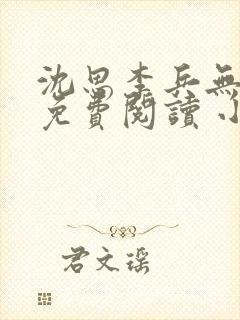 沈思李兵無
免費閱讀小
君文瑤